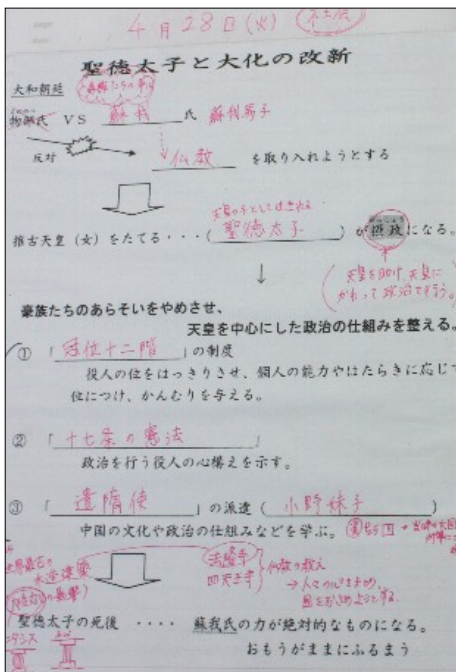 4月28日(火) 社会
聖徳太子と大化の改新
大和朝廷
物部氏 VS 蘇我 氏 蘇我馬子
反対 仏教 を取り入れようとする
天皇の子として生まれる
推古天皇(女)をたてる・・・( 聖徳太子 )が摂政になる。
↓
天皇を助け、天皇に
かわって政治を行う。
豪族たちのあらそいをやめさせ、
天皇を中心にした政治の仕組みを整える。
① 「冠位十二階」の制度
役人の位をはっきりさせ、個人の能力やはたらきに応じて
位につけ、かんむりを与える。
② 「十七条の憲法」
政治を行う役人の心構えを示す。
③ 「遣隋使」の派遣( 小野妹子 )
中国の文化や政治の仕組みなどを学ぶ。
法隆寺
四天王寺
仏教の教え
世界最古の
木造建築
聖徳太子の死後 ・・・・ 蘇我氏の力が絶対的なものになる。
おもうがままにふるまう